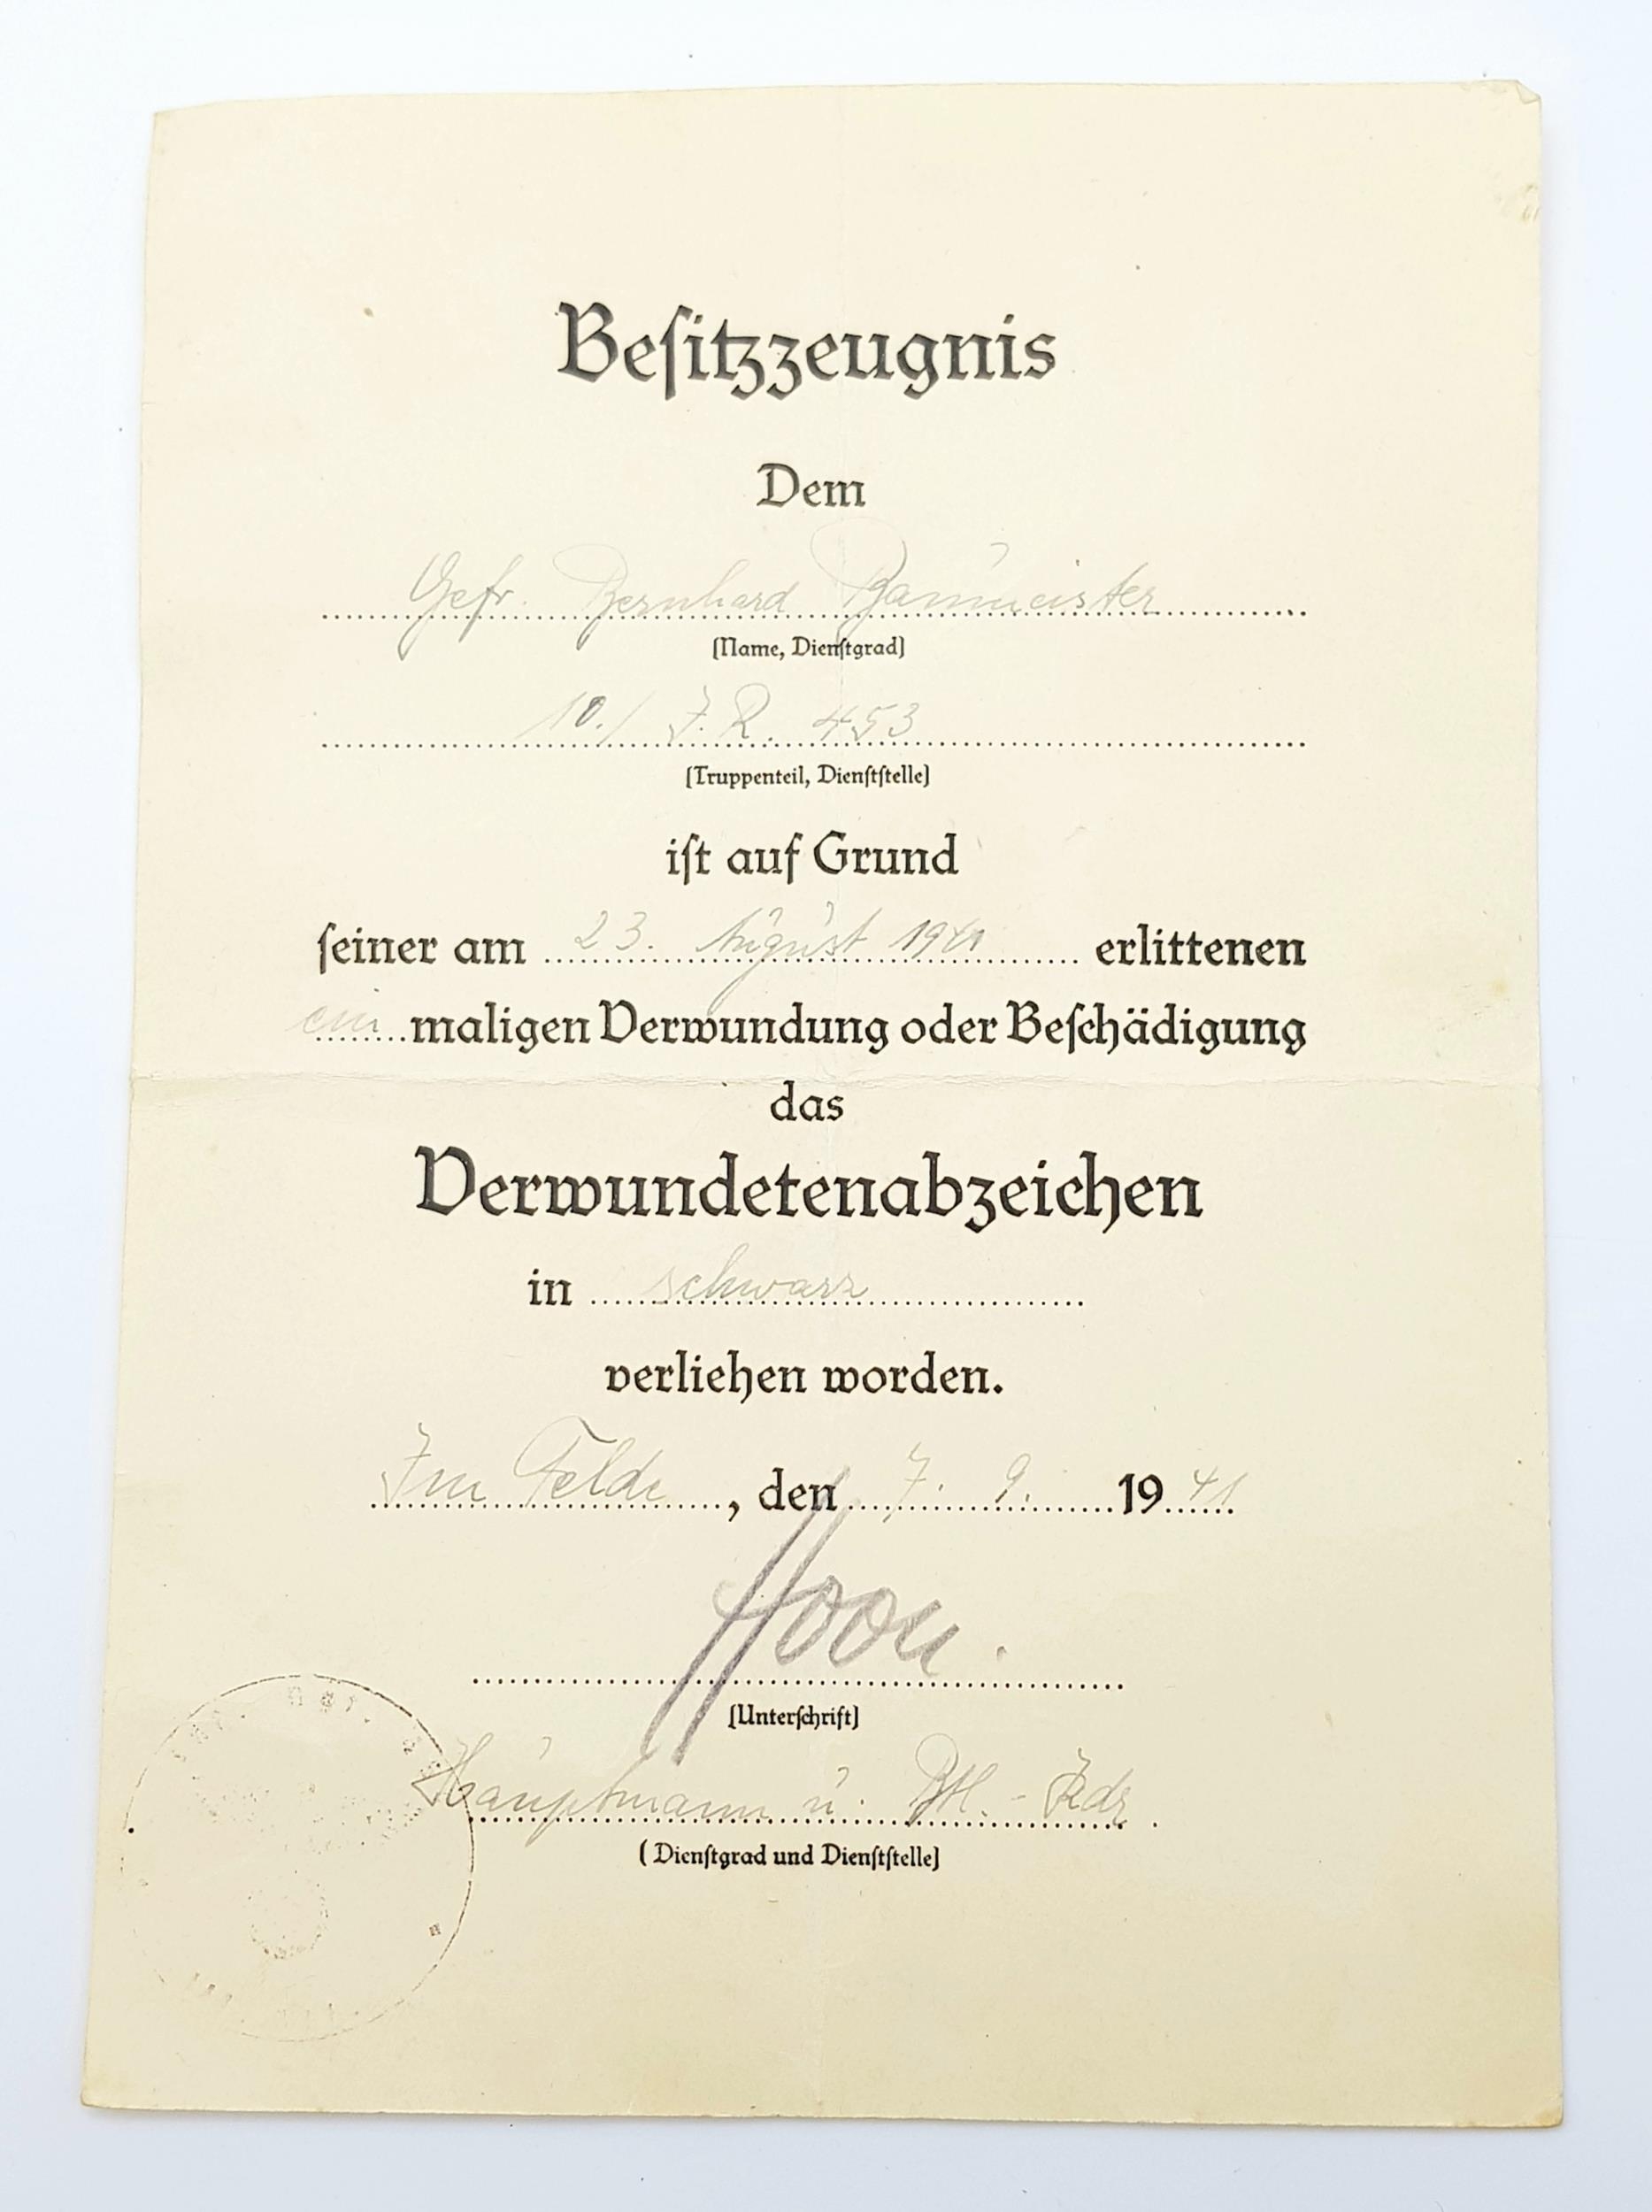 Besitzzeugnis
Dem
Gefr. Bernhard Baumeister
(Name, Dienstgrad)
10./ J.R. 453
(Truppenteil, Dienststelle)
ist auf Grund
seiner am 23. August 1941 erlittenen
ein maligen Verwundung oder Beschädigung
das
Verwundetenabzeichen
in schwarz
verliehen worden.
Im Felde, den 7. 9. 1941
(Unterschrift)
Hauptmann u. Btl.-Fdr.
(Dienstgrad und Dienststelle)